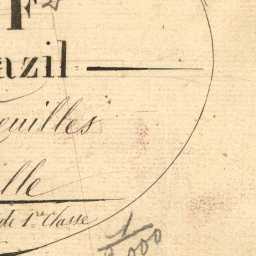 azil
euilles
lle
de 1re Classe
1
000